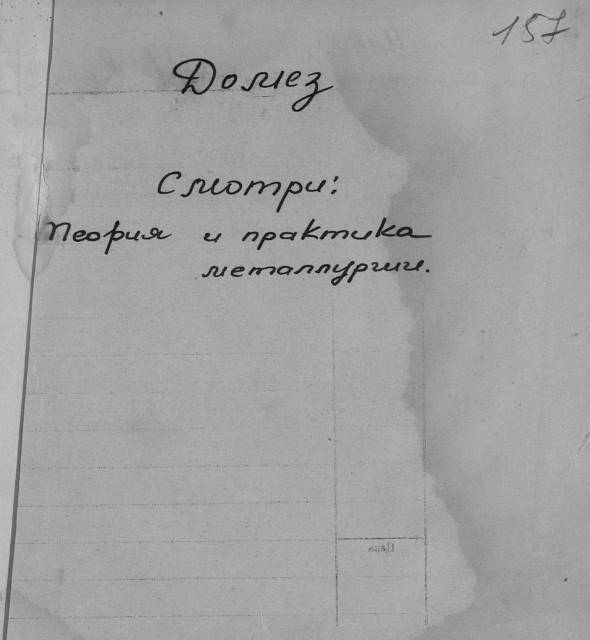 157
Домез
Смотри:
Теория и практика
металлургии.